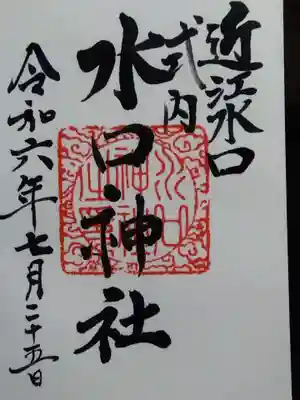 近江水口
式内
水口神社
令和六年七月二十五日